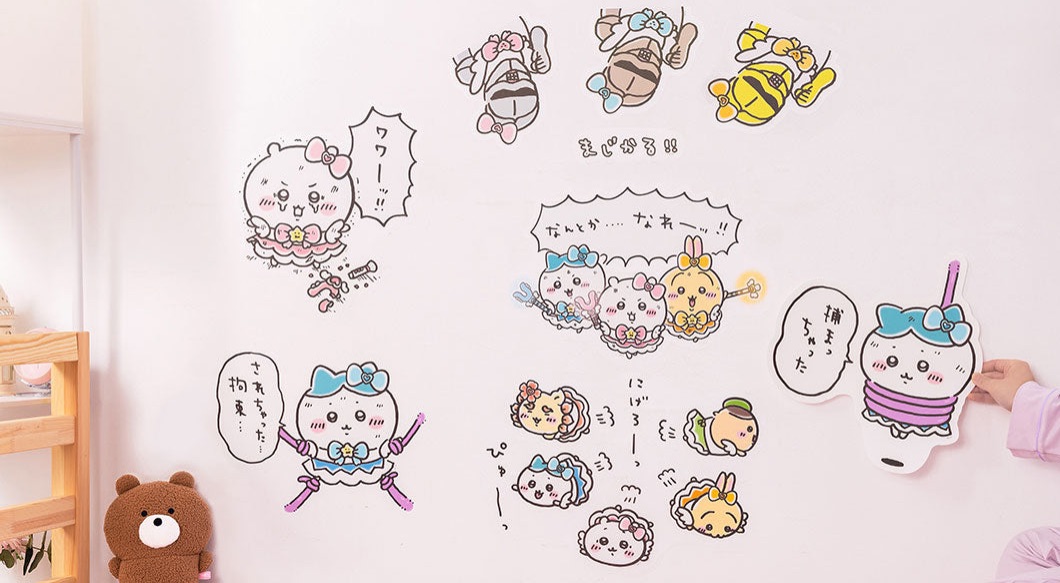 まじかる!!
ワワー…!!
なんとか‥‥なれーッ!!
捕まっ
ちゃった
されちゃった…
拘束…
にげろーーっ
ぴゅーーっ